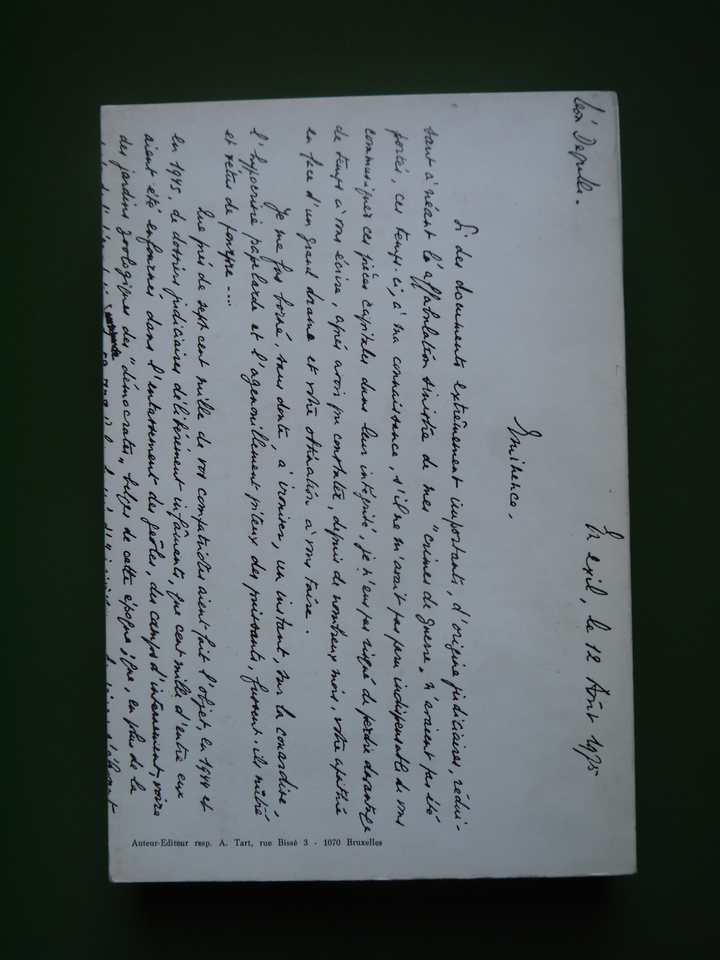 Léon Degrelle.
En exil, le 12 Août 1975
Eminence,
Si des documents extrêmement importants, d'origine judiciaires, rédui-
sant à néant l'affabulation sinistre de mes "crimes de guerre", n'avaient pas été
portés, ces temps-ci, à ma connaissance, s'il ne m'avait pas paru indispensable de vous
communiquer ces pièces capitales dans leur intégrité, je n'eus pas risqué de perdre davantage
de temps à vous écrire, après avoir pu constater, depuis de nombreux mois, votre apathie
en face d'un grand drame et votre obstination à vous taire.
Je me fus borné, sans doute, à ironiser, un instant, sur la couardise,
l'hypocrisie papelarde et l'agenouillement piteux des puissants, fussent-ils mitrés
et vêtus de pourpre ....
Que près de sept cent mille de vos compatriotes aient fait l'objet, en 1944 et
en 1945, de dossiers judiciaires délibérément infâmants, que cent mille d'entre eux
aient été enfournés dans l'entassement des geôles, des camps d'internement, voire
des jardins zoologiques des "démocrates" belges de cette époque; que, en plus de la
Auteur-Editeur resp. A. Tart, rue Bissé 3 - 1070 Bruxelles